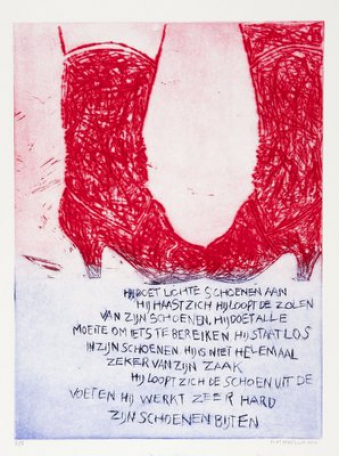 HIJ DOET LICHTE SCHOENEN AAN
HIJ HAAST ZICH HIJ LOOPT DE ZOLEN
VAN ZIJN SCHOENEN. HIJ DOET ALLE
MOEITE OM IETS TE BEREIKEN HIJ STAAT LOS
IN ZIJN SCHOENEN. HIJ IS NIET HELEMAAL
ZEKER VAN ZIJN ZAAK
HIJ LOOPT ZICH DE SCHOEN UIT DE
VOETEN HIJ WERKT ZEER HARD
ZIJN SCHOENEN BIJTEN